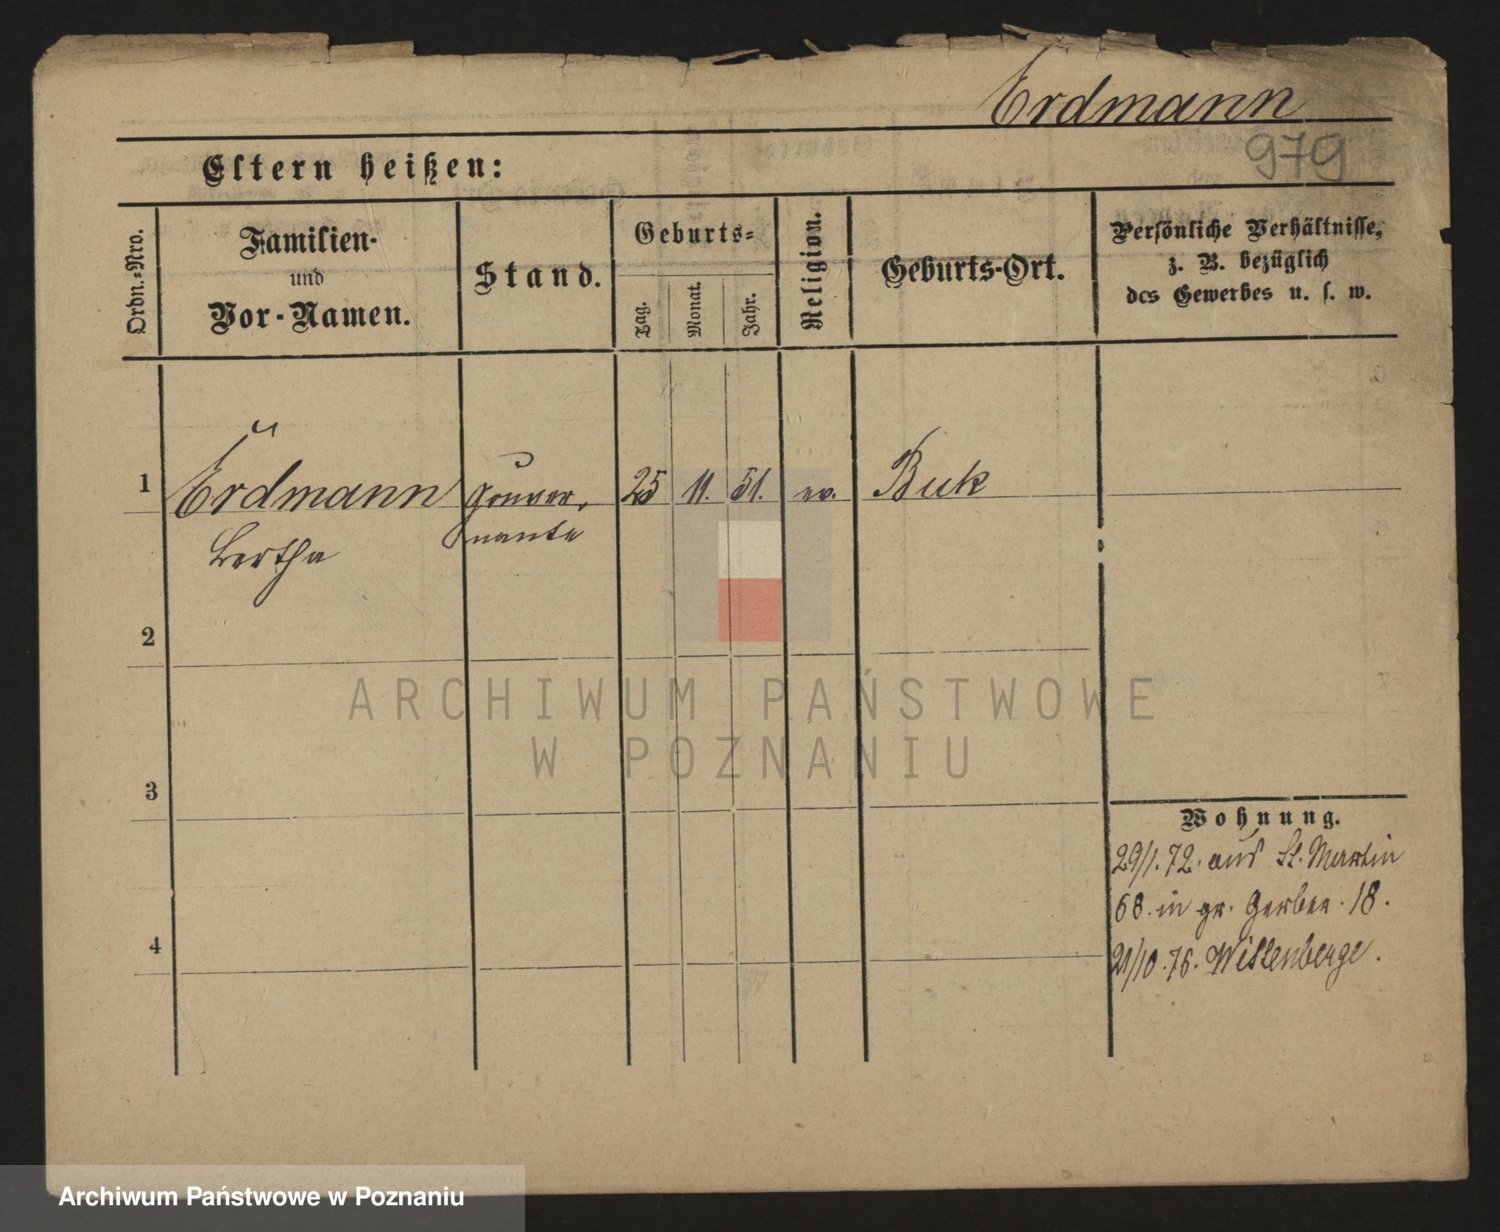 Erdmann
979
Eltern heißen:
Ordn.-Nro.
Familien-
und
Vor-Namen.
Stand.
Geburts-
Tag.
Monat.
Jahr.
Religion.
Geburts-Ort.
Persönliche Verhältnisse,
z. B. bezüglich
des Gewerbes u. s. w.
1
Erdmann
Bertha
Gouver-
nante
25
11.
51.
ev.
Buk
2
3
4
Wohnung.
29/1. 72. aus St. Martin
68. in gr. Gerber. 18.
21/10. 76. Wittenberge.
ARCHIWUM PAŃSTWOWE
W POZNANIU
Archiwum Państwowe w Poznaniu